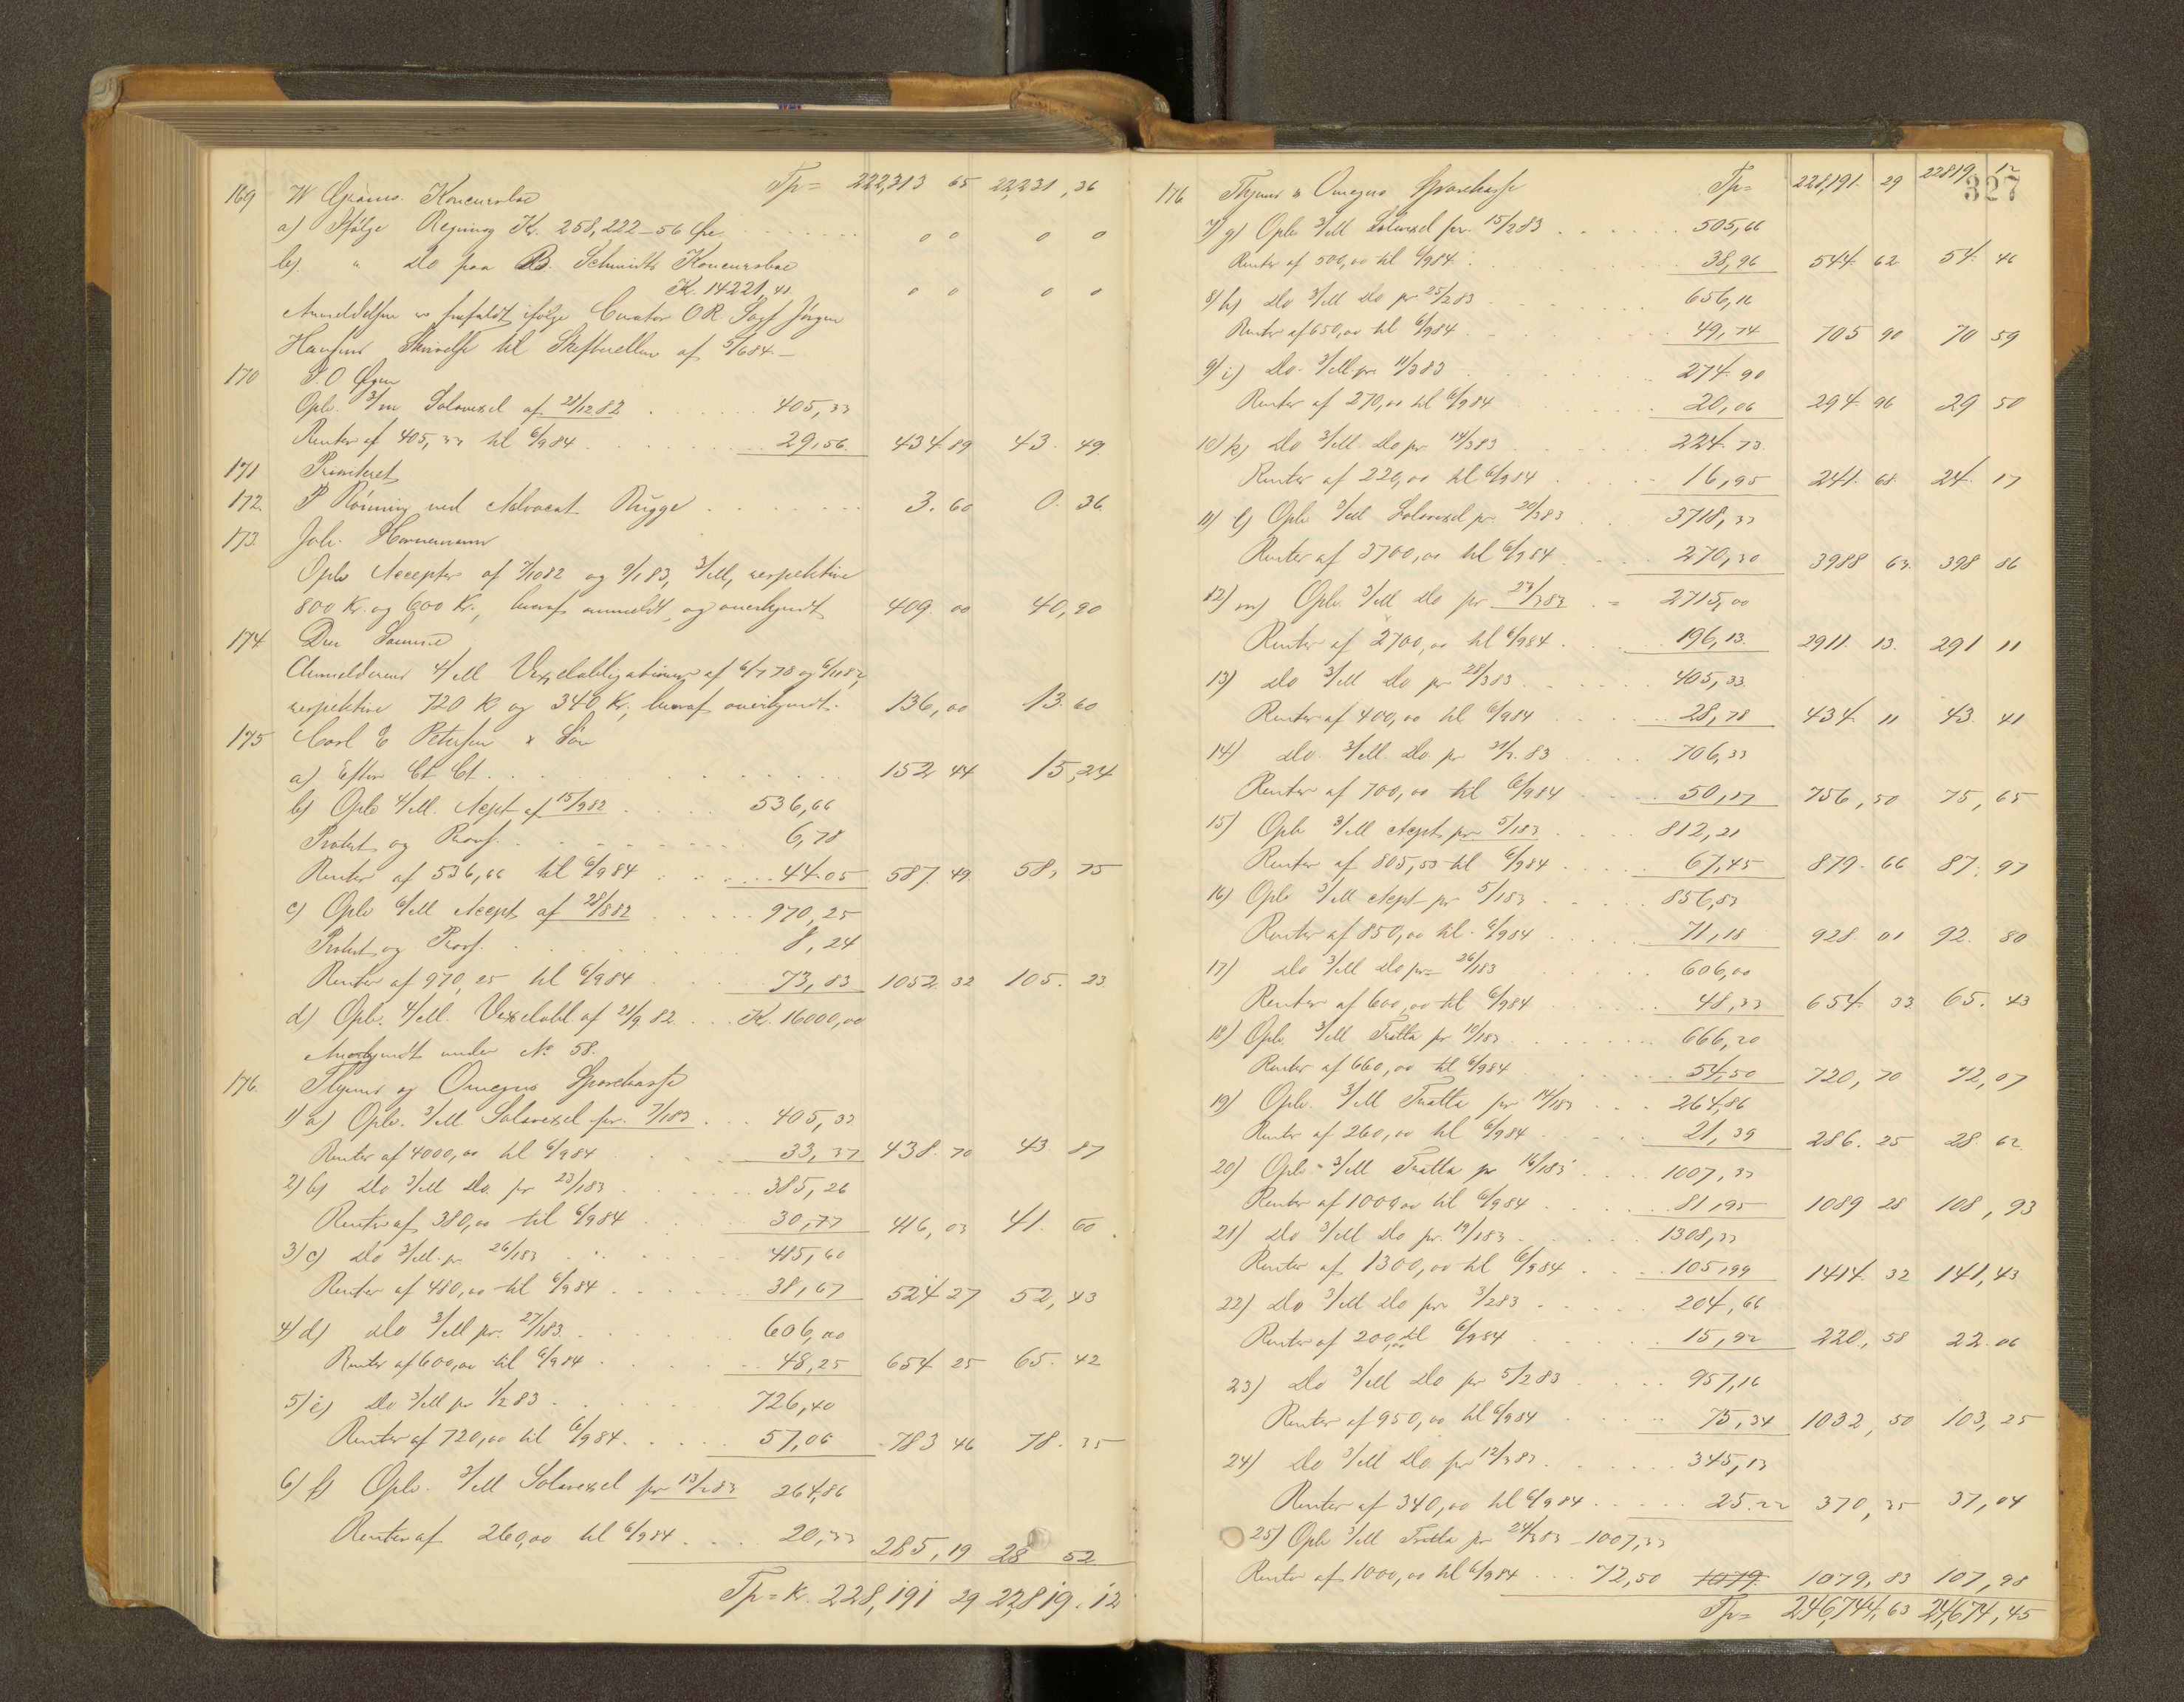 Tp = 222,313 65 22,231,36
169 W Grams Koncursbo
a) Ifølge Regning Kr. 258,222-56 Øre 0 0 0 0
b) " Do paa B. Schmidts Koncursbo
K. 14221,41 0 0 0 0
Anmeldelsen er frafaldt ifølge Curator O.R. Sagf Jørgen
Hansens Skrivelse til Skifteretten af 5/6 84 -
170 P.O. Øgen
Oplr. 3/m Solavexel af 28/12 82 405,33
Renter af 405,33 til 6/9 84 29,56 434 89 43. 49
171 Prioriteret
172. P Rönning ved Advocat Bugge 3. 60 0. 36
173. Joh. Hannemann
Oplr Accepter af 7/10 82 og 9/1 83, 3/M, respektive
800 Kr. og 600 Kr., heraf anmeldt og anerkjendt 409. 00 40,90
174 Den Samme
Anmelderens 4/M Vexelobligationer af 6/7 78 og 6/11 82,
respektive 720 K og 340 Kr, heraf anerkjendt. 136,00 13. 60
175 Carl E Petersen & Søn
a) Efter Ct Ct. 152 44 15,24
b) Oplr 4/M. Acpt af 15/9 82 536,66
Protest og Prov. 6,78
Renter af 536,66 til 6/9 84 44.05 587. 49. 58, 75
c) Oplr 6/M Accept af 28/8 82 970,25
Protest og Prov. 8,24
Renter af 970,25 til 6/9 84 73,83 1052. 32 105. 23.
d) Oplr. 4/M. Vexelobl. af 21/9 82 K. 16000,00
Anerkjendt under No 58.
176. Thjems og Omegns Sparekasse
1) a) Oplr. 3/M Solavexel pr. 7/1 83 405,33
Renter af 4000,00 til 6/9 84 33,37 438. 70 43. 87
2) b) Do 3/M Do. pr 23/1 83 385,26
Renter af 380,00 til 6/9 84 30,77 416,03 41. 60
3) c) Do 3/M. pr 26/1 83 485,60
Renter af 480,00 til 6/9 84 38,67 524 27 52,43
4) d) Do 3/M pr. 27/1 83 606,00
Renter af 600,00 til 6/9 84 48,25 654 25 65. 42
5) e) Do 3/M pr 1/2 83 726,40
Renter af 720,00 til 6/9 84. 57,06 783 46 78. 35
6) f) Oplr. 3/M Solavexel pr 13/2 83 264,86
Renter af 260,00 til 6/9 84 20,33 285,19 28 52
Tp = Kr. 228,191 29 22,819.12
327
176 Thjems & Omegns Sparekasse Tp = 228,191. 29 22819 12
7) g) Oplr 3/M Solavexel pr. 15/2 83 505,66
Renter af 500,00 til 6/9 84 38,96 544. 62. 54. 46
8) h) Do 3/M Do pr 25/2 83 656,16
Renter af 650,00 til 6/9 84 49,74 705 90 70 59
9) i) Do. 3/M pr 11/3 83 274. 90
Renter af 270,00 til 6/9 84 20,06 294. 96 29 50
10) k) Do 3/M. Do pr 14/3 83 224. 73.
Renter af 220,00 til 6/9 84 16,95 241. 68. 24. 17
11) l) Oplr 3/M Solavexel pr. 20/3 83 3718,33
Renter af 3700,00 til 6/9 84 270,30 3988 63. 398 86
12) m) Oplr. 3/M Do pr 23/3 83 = 2715,00
Renter af 2700,00 til 6/9 84 196,13. 2911. 13. 291 11
13) Do 3/M Do pr 28/3 83 405,33.
Renter af 400,00 til 6/9 84 28,78 434. 11 43. 41
14) Do. 3/M. Do. pr 31/3. 83 706,33
Renter af 700,00 til 6/9 84 50,17 756,50 75,65
15) Oplr 3/M Acpt pr 5/1 83 812,21
Renter af 805,53 til 6/9 84 67,45 879. 66 87. 97
16) Oplr 3/M Acpt pr 5/1 83 856,83
Renter af 850,00 til. 6/9 84 71,18 928. 01 92. 80
17) Do 3/M Do pr = 26/1 83 606,00
Renter af 600,00 til 6/9 84 48,33 654. 33. 65. 43
18) Oplr 3/M Tratta pr 10/1 83 666,20
Renter af 660,00 til 6/9 84 54,50 720,70 72,07
19) Oplr. 3/M Tratta pr 14/1 83 264,86
Renter af 260,00 til 6/9 84 21,39 286. 25 28. 62.
20) Oplr 3/M Tratta pr 16/1 83 1007,33
Renter af 1000,00 til 6/9 84 81,95 1089 28 108,93
21) Do 3/M Do pr. 19/1 83 1308,33
Renter af 1300,00 til 6/9 84 105,99 1414. 32 141,43
22) Do 3/M Do pr 3/2 83 204,66
Renter af 200,00 til 6/9 84 15,92 220,58 22. 06
23) Do 3/M Do pr 5/2 83 957,16
Renter af 950,00 til 6/9 84 75,34 1032,50 103,25
24) Do 3/M Do. pr 12/3 83. 345,13
Renter af 340,00 til 6/9 84 25.22 370,35 37,04
25) Oplr 3/M Tratta pr 24/3 83 - 1007,33
Renter af 1000,00 til 6/9 84 72,50 1079. 1079,83 107,98
Tp = 246,744,63 24,674,45